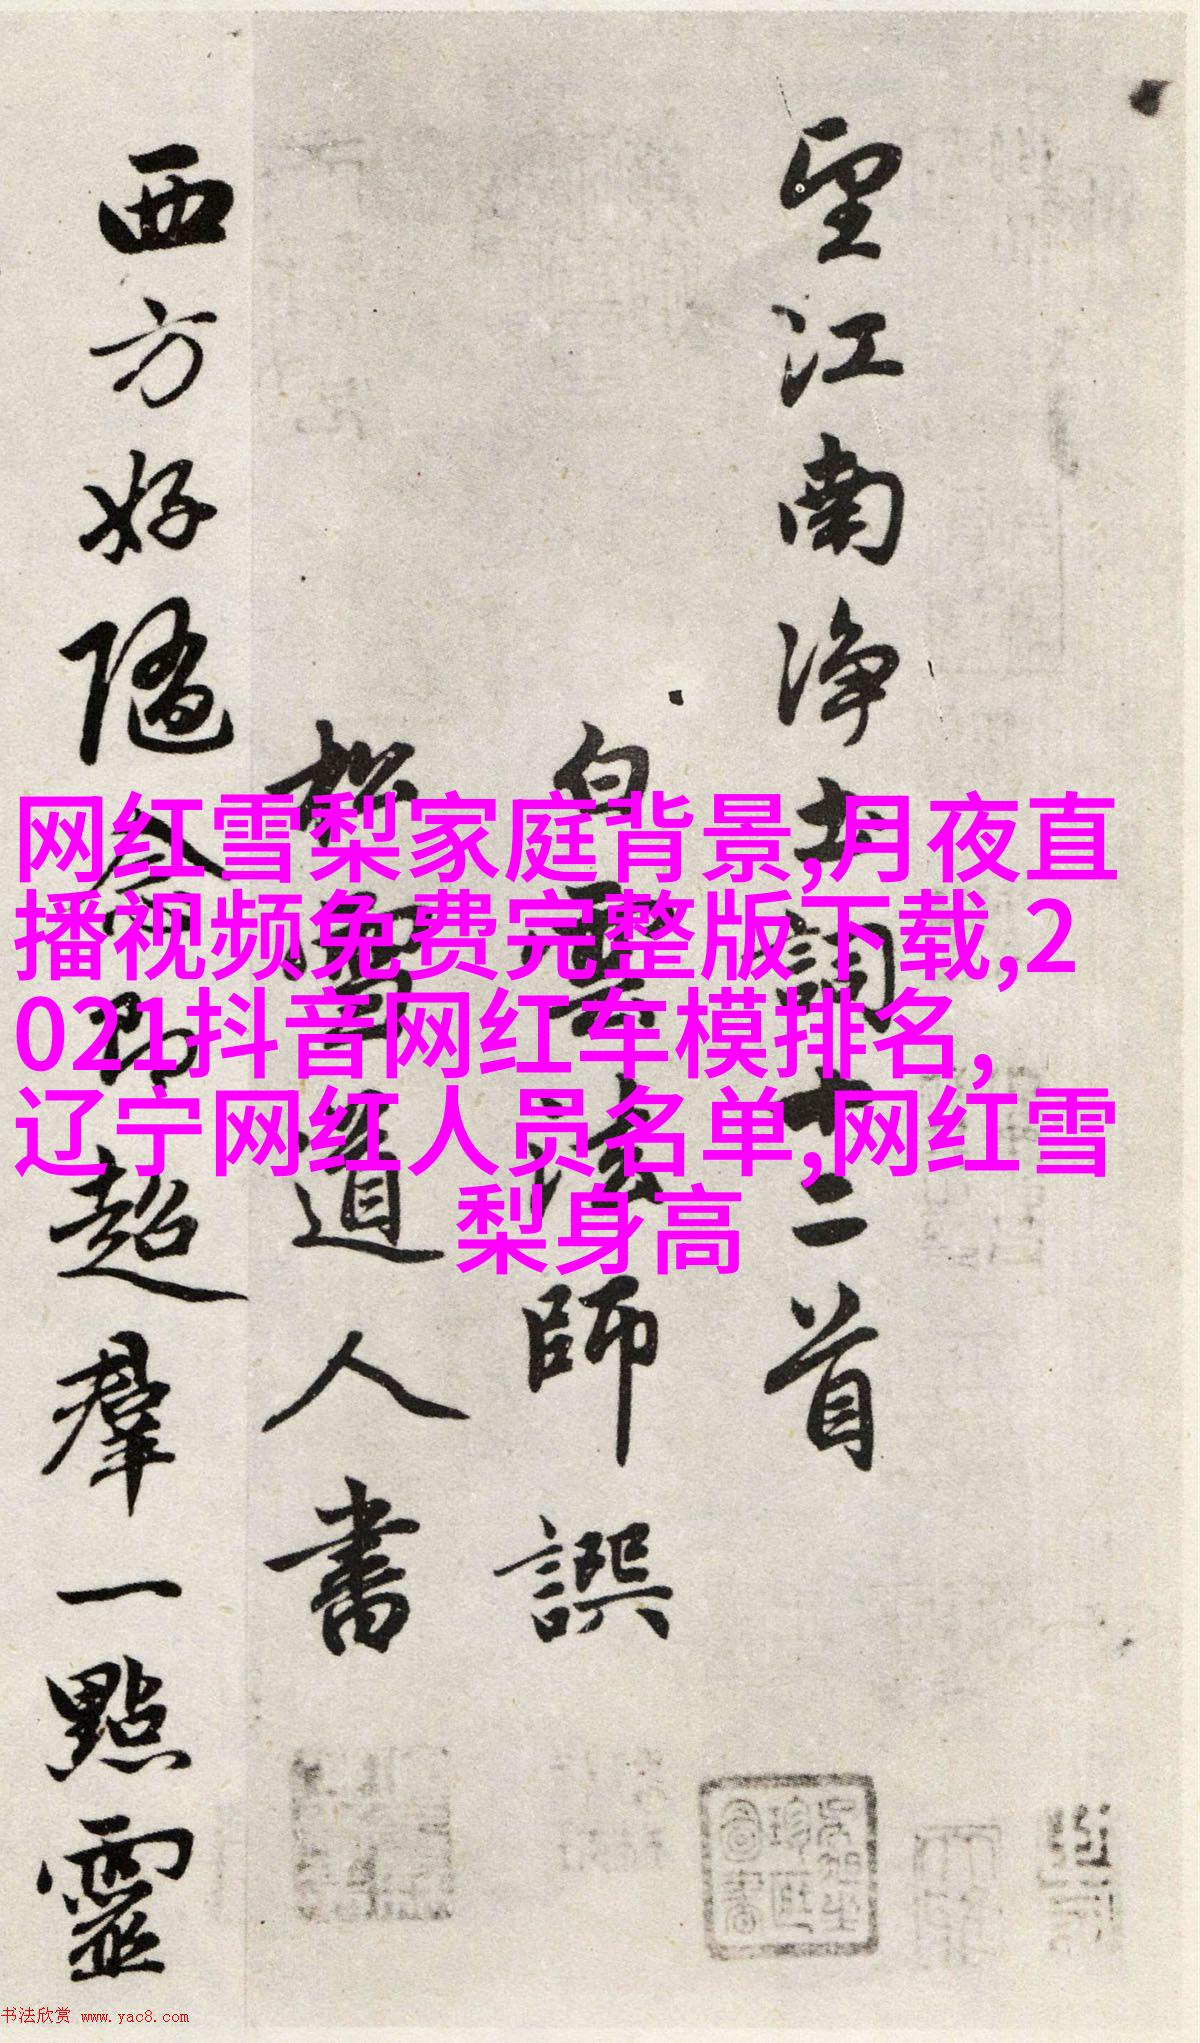 望江南净土詞十二首
白雲法師譔
松雪道人書
西方好随念即超羣一點靈
网红雪梨家庭背景,月夜直
播视频免费完整版下载,2
021抖音网红车模排名,
辽宁网红人员名单,网红雪
梨身高
书法欣赏 www.yac8.com